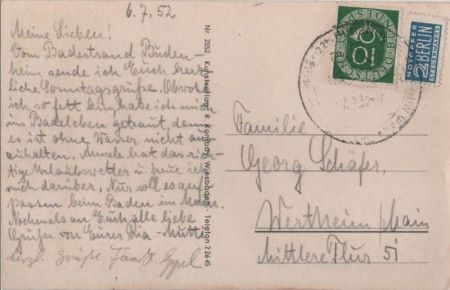 6.7.52
Meine Lieben!
Vom Badestrand Büden-
heim sende ich Euch herz-
liche Sonntagsgrüße. Obwohl
ich so fett bin habe ich mich
ins Badeleben getraut, denn
es ist ohne Wasser nicht aus
zuhalten. Annele hat das rich-
tige Urlaubswetter u. freue ich
mich darüber. Nur soll es auf-
passen beim Baden im Main.
Nochmals an Euch alle liebe
Grüße von Eurer Ria-Mutti
herzl. Grüße Fam.
Nr. 2052 Kunstverlag R. Wiesbaden - Telefon 22645
DEUTSCHE BUNDESPOST
10
NOTOPFER
2 BERLIN
STEUERMARKE
Familie
Georg Schäfer,
Wertheim/Main
Mittlere Flur 51